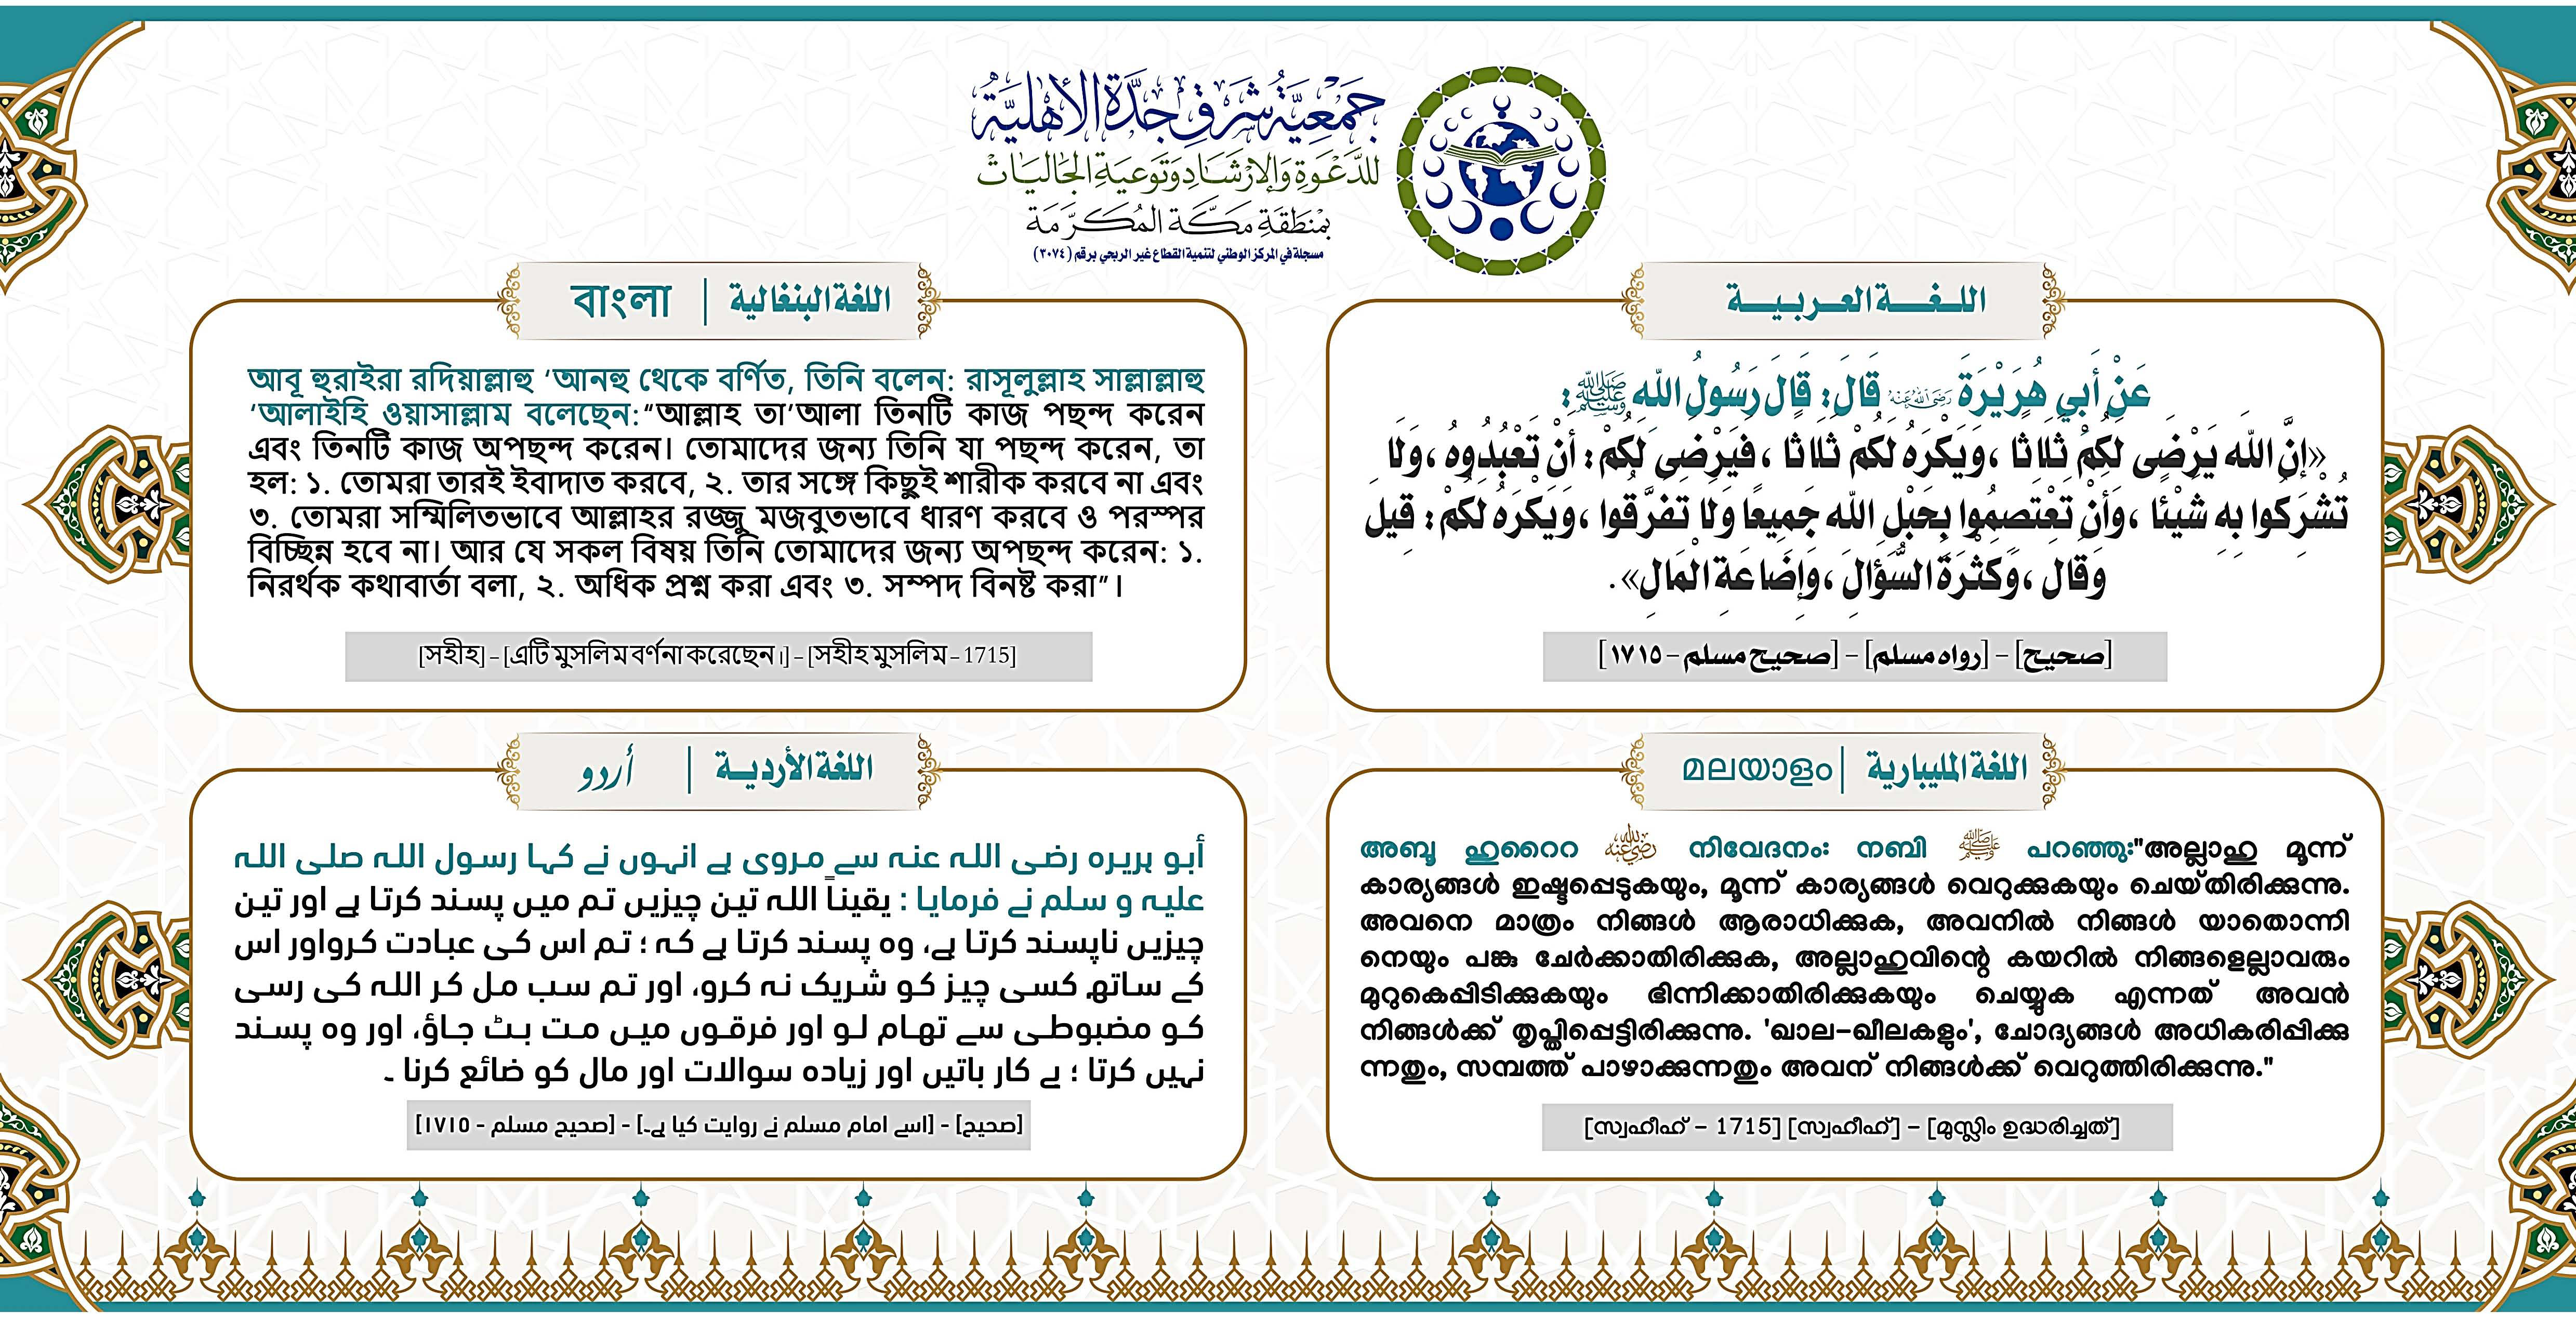 جَمْعِيَّةُ شَرْقِ جَدَّةَ الأَهْلِيَّةُ
لِلدَّعْوَةِ وَالإِرْشَادِ وَتَوْعِيَةِ الجَالِيَاتْ
بِمِنْطَقَةِ مَكَّةَ المُكَرَّمَة
مسجلة في المركز الوطني لتنمية القطاع غير الربحي برقم (٣٠٧٤)
اللغة العربية
عَنْ أَبِي هُرَيْرَةَ رضي الله عنه قَالَ: قَالَ رَسُولُ اللَّه ﷺ:
«إنَّ اللَّه يَرْضَى لَكُمْ ثَلَاثًا، وَيَكْرَهُ لَكُمْ ثَلَاثًا، فَيَرْضَى لَكُمْ: أنْ تَعْبُدُوهُ، وَلَا
تُشْرِكُوا بِهِ شَيْئًا، وَأنْ تَعْتَصِمُوا بِحَبْلِ اللَّه جَمِيعًا وَلَا تَفَرَّقُوا، وَيَكْرَهُ لَكُمْ: قِيلَ
وَقَال، وَكَثْرَةَ السُّؤَالَ، وَإِضَاعَةِ الْمَالِ».
[صحيح] – [رواه مسلم] – [صحيح مسلم – ١٧١٥]
اللغة البنغالية | বাংলা
আবূ হুরাইরা রদিয়াল্লাহু ‘আনহু থেকে বর্ণিত, তিনি বলেন: রাসূলুল্লাহ সাল্লাল্লাহু
‘আলাইহি ওয়াসাল্লাম বলেছেন:“আল্লাহ তা’আলা তিনটি কাজ পছন্দ করেন
এবং তিনটি কাজ অপছন্দ করেন। তোমাদের জন্য তিনি যা পছন্দ করেন, তা
হল: ১. তোমরা তারই ইবাদাত করবে, ২. তার সঙ্গে কিছুই শারীক করবে না এবং
৩. তোমরা সম্মিলিতভাবে আল্লাহর রজ্জু মজবুতভাবে ধারণ করবে ও পরস্পর
বিচ্ছিন্ন হবে না। আর যে সকল বিষয় তিনি তোমাদের জন্য অপছন্দ করেন: ১.
নিরর্থক কথাবার্তা বলা, ২. অধিক প্রশ্ন করা এবং ৩. সম্পদ বিনষ্ট করা”।
[সহীহ] – [এটি মুসলিম বর্ণনা করেছেন।] – [সহীহ মুসলিম – 1715]
اللغة المليبارية | മലയാളം
അബൂ ഹുറൈറ رضي الله عنه നിവേദനം: നബി ﷺ പറഞ്ഞു:"അല്ലാഹു മൂന്ന്
കാര്യങ്ങൾ ഇഷ്ടപ്പെടുകയും, മൂന്ന് കാര്യങ്ങൾ വെറുക്കുകയും ചെയ്തിരിക്കുന്നു.
അവനെ മാത്രം നിങ്ങൾ ആരാധിക്കുക, അവനിൽ നിങ്ങൾ യാതൊന്നി
നെയും പങ്കു ചേർക്കാതിരിക്കുക, അല്ലാഹുവിന്റെ കയറിൽ നിങ്ങളെല്ലാവരും
മുറുകെപ്പിടിക്കുകയും ഭിന്നിക്കാതിരിക്കുകയും ചെയ്യുക എന്നത് അവൻ
നിങ്ങൾക്ക് തൃപ്തിപ്പെട്ടിരിക്കുന്നു. 'ഖാല-ഖീലകളും', ചോദ്യങ്ങൾ അധികരിപ്പിക്കു
ന്നതും, സമ്പത്ത് പാഴാക്കുന്നതും അവന് നിങ്ങൾക്ക് വെറുത്തിരിക്കുന്നു."
[സ്വഹീഹ് – 1715] [സ്വഹീഹ്] – [മുസ്ലിം ഉദ്ധരിച്ചത്]
اللغة الأردية | أردو
أبو ہریرہ رضی اللہ عنہ سے مروی ہے انہوں نے کہا رسول اللہ صلی اللہ
علیہ و سلم نے فرمایا : یقیناً اللہ تین چیزیں تم میں پسند کرتا ہے اور تین
چیزیں ناپسند کرتا ہے، وہ پسند کرتا ہے کہ ؛ تم اس کی عبادت کرواور اس
کے ساتھ کسی چیز کو شریک نہ کرو، اور تم سب مل کر اللہ کی رسی
کو مضبوطی سے تھام لو اور فرقوں میں مت بٹ جاؤ، اور وہ پسند
نہیں کرتا ؛ بے کار باتیں اور زیادہ سوالات اور مال کو ضائع کرنا ۔
[صحیح] – [اسے امام مسلم نے روایت کیا ہے۔] – [صحیح مسلم – ١٧١٥]